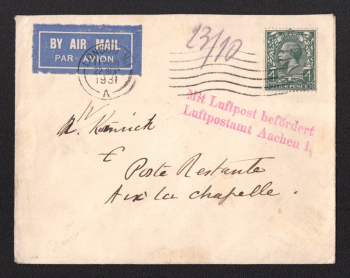 BY AIR MAIL
PAR AVION
1931
A
23/10
4 4
Mit Luftpost befördert
Luftpostamt Aachen 1.
Poste Restante
Aix la chapelle.